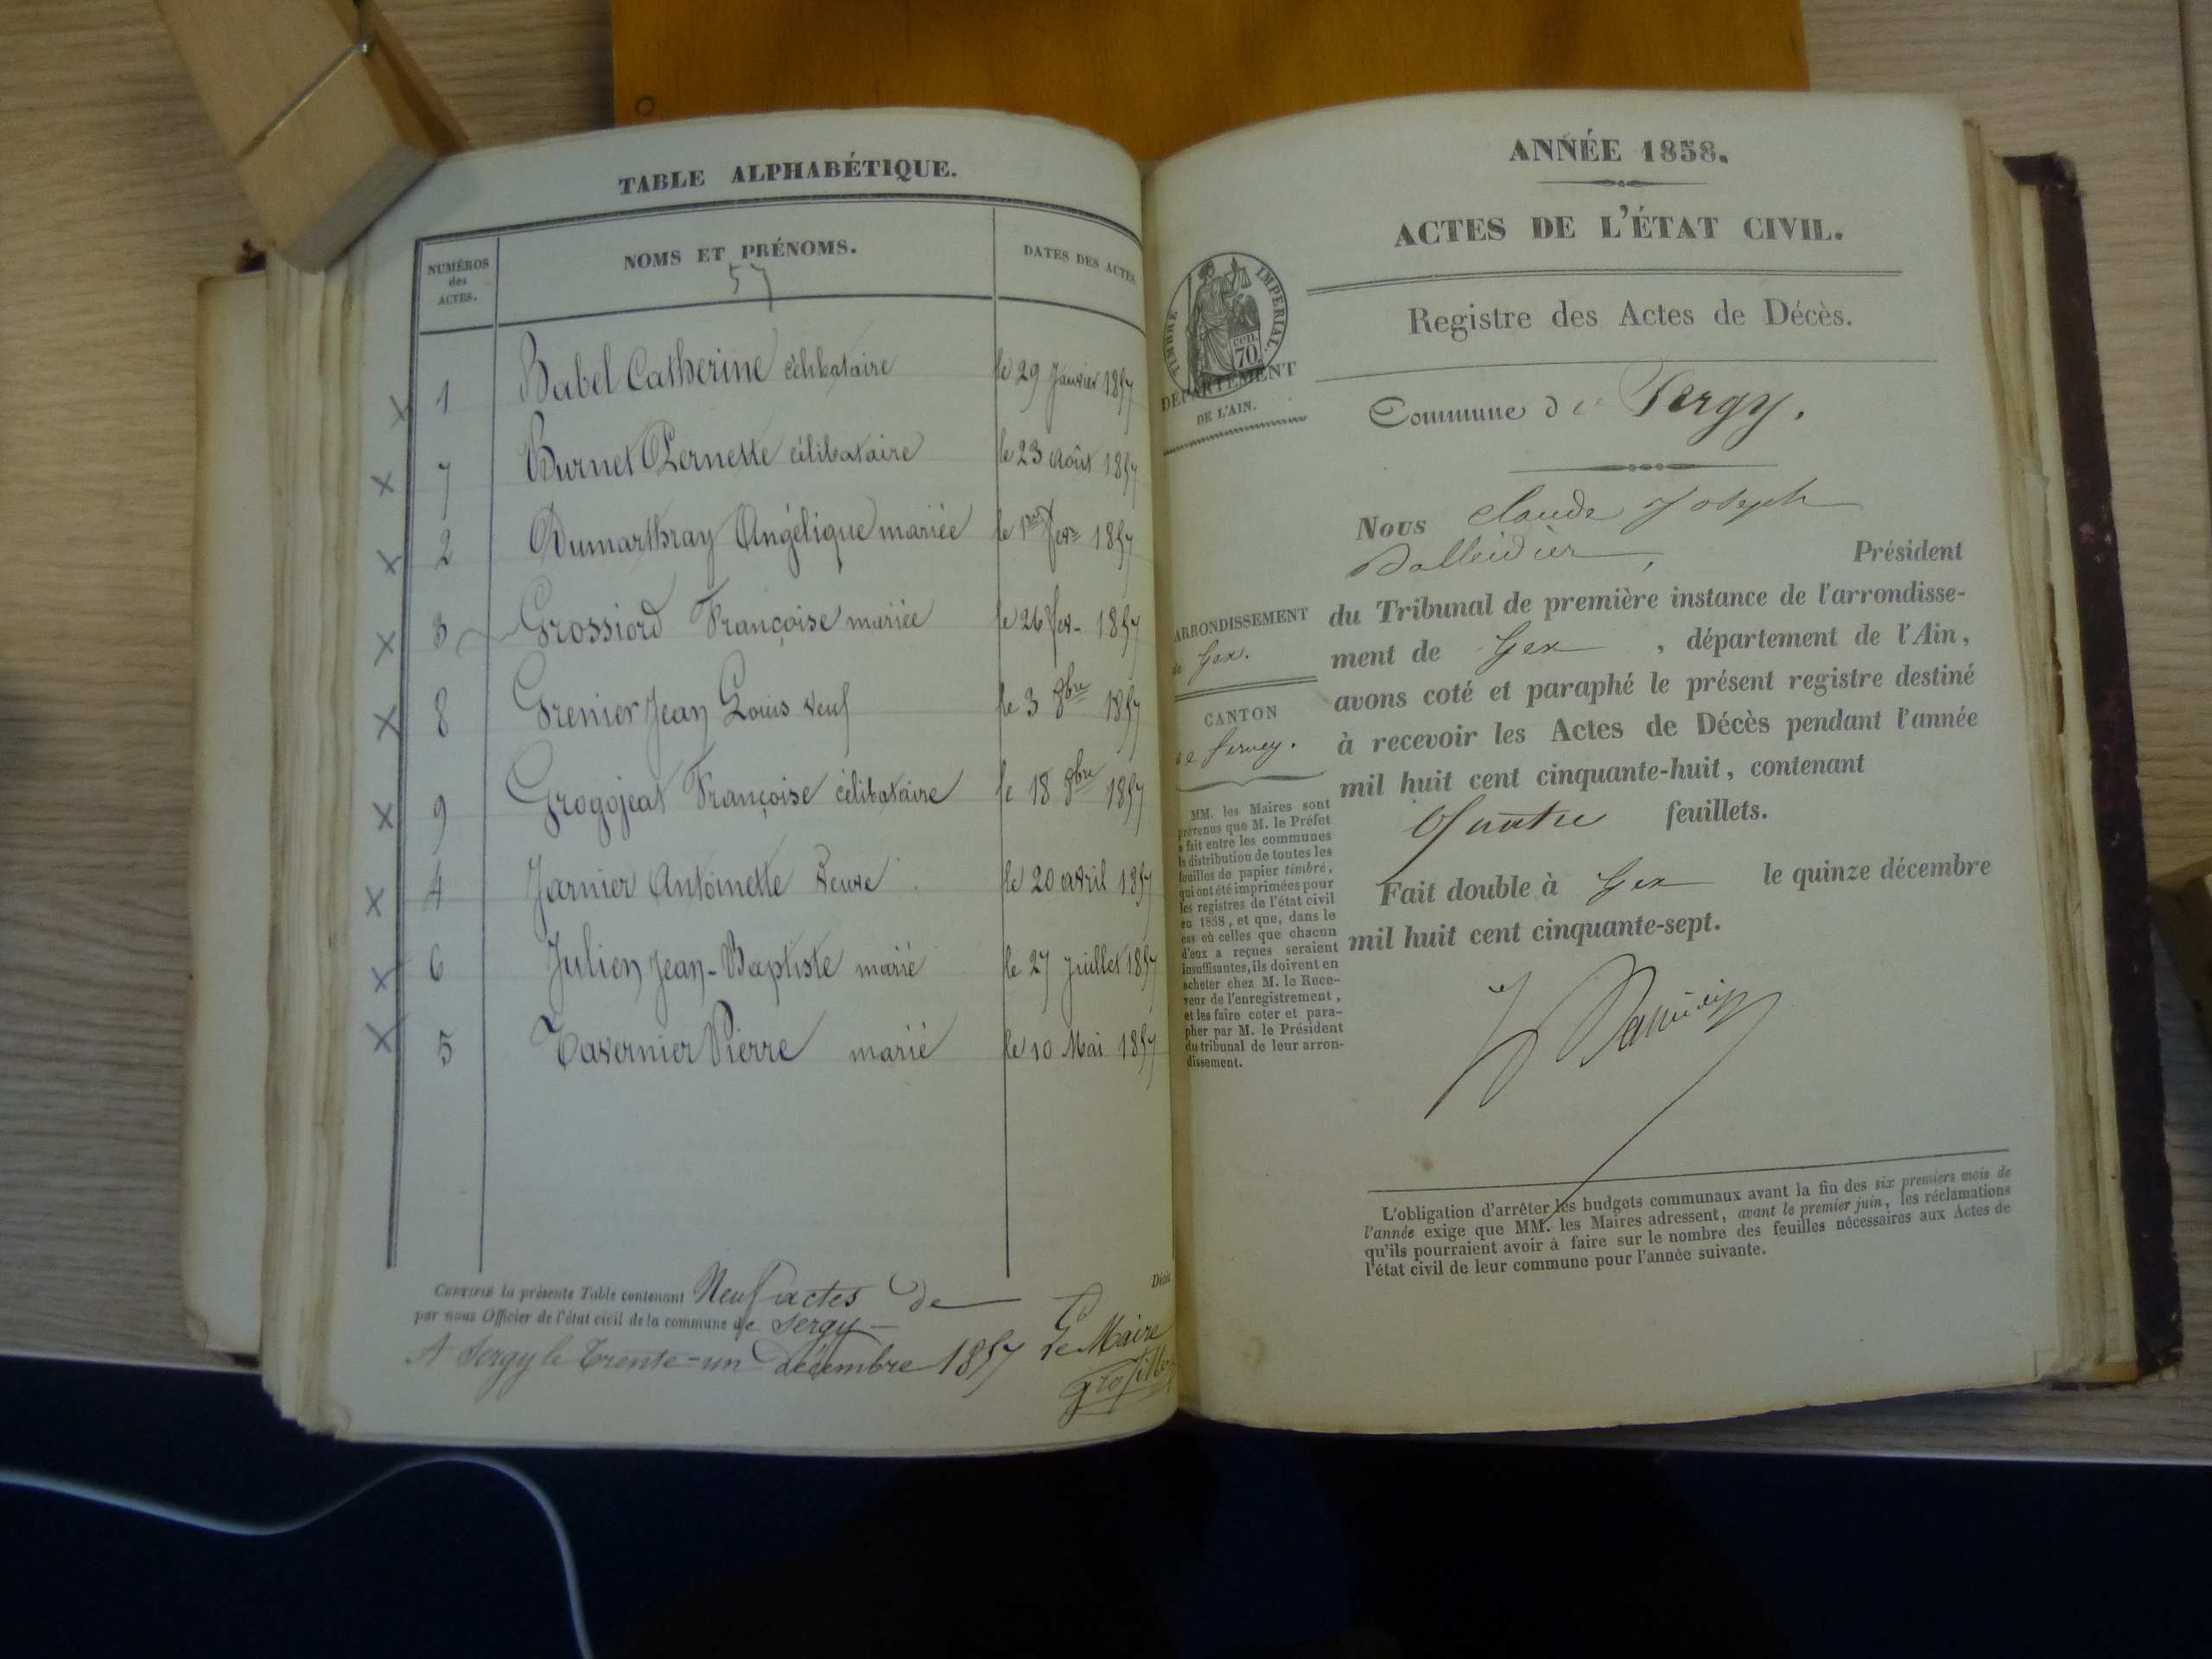 TABLE ALPHABÉTIQUE.
NUMÉROS des ACTES. NOMS ET PRÉNOMS. DATES DES ACTES
57
1 Babel Catherine célibataire le 29 Janvier 1857
7 Burnet Pernette célibataire le 23 Août 1857
2 Dumarthray Angélique mariée le 1er fevr 1857
3 Grossiord Françoise mariée le 26 fev- 1857
8 Grenier Jean Louis veuf le 3 8bre 1857
9 Grogojeat Françoise célibataire le 18 8bre 1857
4 Jarnier Antoinette veuve le 20 avril 1857
6 Julien Jean-Baptiste marié le 27 Juillet 1857
5 Tavernier Pierre marié le 10 Mai 1857
CERTIFIÉ la présente Table contenant Neuf actes de Décès
par nous Officier de l'état civil de la commune de Sergy
A Sergy le Trente-un décembre 1857 Le Maire
ANNÉE 1858.
ACTES DE L'ÉTAT CIVIL.
TIMBRE IMPERIAL
70 cen
DÉPARTEMENT
DE L'AIN.
Registre des Actes de Décès.
Commune de Sergy.
ARRONDISSEMENT
de Gex.
CANTON
de Ferney.
MM. les Maires sont
prévenus que M. le Préfet
a fait entre les communes
la distribution de toutes les
feuilles de papier timbré,
qui ont été imprimées pour
les registres de l'état civil
en 1858, et que, dans le
cas où celles que chacun
d'eux a reçues seraient
insuffisantes, ils doivent en
acheter chez M. le Rece-
veur de l'enregistrement,
et les faire coter et para-
pher par M. le Président
du tribunal de leur arron-
dissement.
Nous Claude Joseph
Président
du Tribunal de première instance de l'arrondisse-
ment de Gex, département de l'Ain,
avons coté et paraphé le présent registre destiné
à recevoir les Actes de Décès pendant l'année
mil huit cent cinquante-huit, contenant
Quatre feuillets.
Fait double à Gex le quinze décembre
mil huit cent cinquante-sept.
L'obligation d'arrêter les budgets communaux avant la fin des six premiers mois de
l'année exige que MM. les Maires adressent, avant le premier juin, les réclamations
qu'ils pourraient avoir à faire sur le nombre des feuilles nécessaires aux Actes de
l'état civil de leur commune pour l'année suivante.